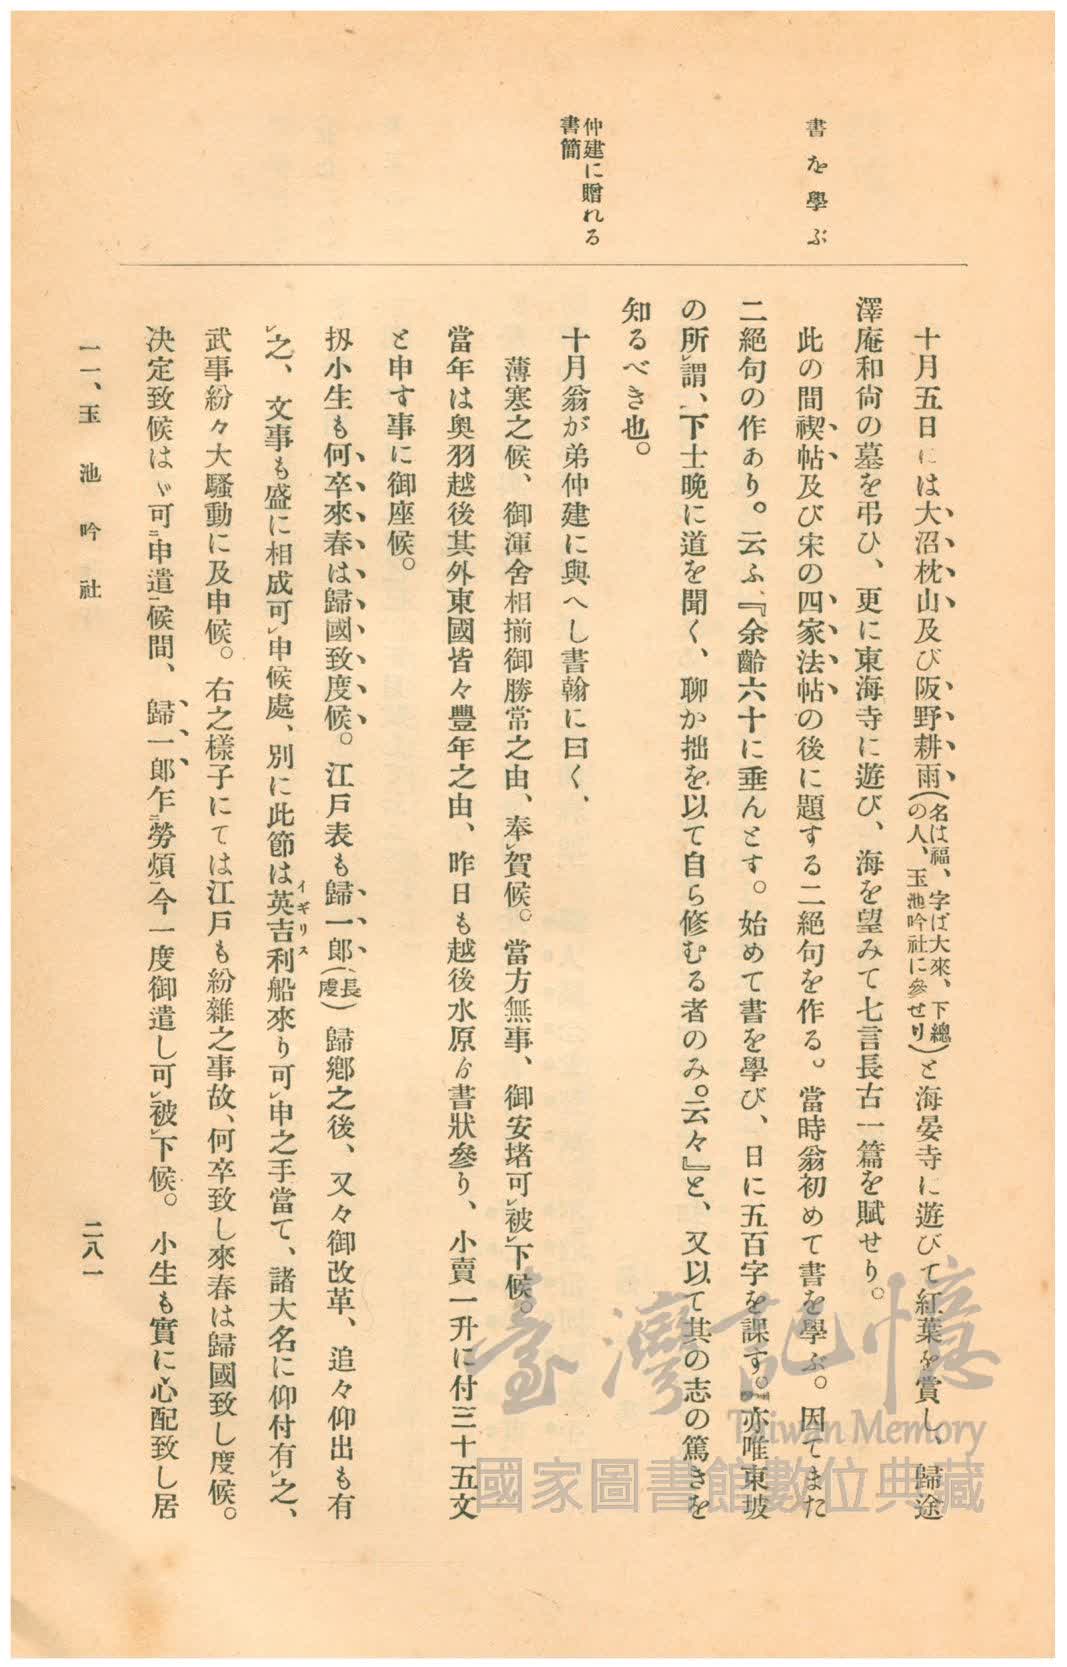 書を學ぶ
仲建に贈れる
書簡
十月五日には大沼枕山及び阪野耕雨(名は福、字ば大來、下總の人、玉池吟社に參せり)と海晏寺に遊びて紅葉を賞し、歸途
澤庵和尙の墓を弔ひ、更に東海寺に遊び、海を望みて七言長古一篇を賦せり。
此の間禊帖及び宋の四家法帖の後に題する二絕句を作る。當時翁初めて書を學ぶ。因てまた
二絕句の作あり。云ふ、『余齡六十に垂んとす。始めて書を學び、日に五百字を課す。亦唯東坡
の所レ謂、下士晚に道を聞く、聊か拙を以て自ら修むる者のみ。云々』と、又以て其の志の篤きを
知るべき也。
十月翁が弟仲建に與へし書翰に曰く、
薄寒之候、御渾舍相揃御勝常之由、奉レ賀候。當方無事、御安堵可レ被レ下候。
當年は奧羽越後其外東國皆々豐年之由、昨日も越後水原ゟ書狀參り、小賣一升に付三十五文
と申す事に御座候。
扨小生も何卒來春は歸國致度候。江戶表も歸一郞(長虔)歸鄕之後、又々御改革、追々仰出も有
レ之、文事も盛に相成可レ申候處、別に此節は英吉利船來り可レ申之手當て、諸大名に仰付有レ之、
イギリス
武事紛々大騷動に及申候。右之樣子にては江戶も紛雜之事故、何卒致し來春は歸國致し度候。
決定致候はゞ可二申遣一候間、歸一郞乍二勞煩一今一度御遣し可レ被レ下候。小生も實に心配致し居
一一、玉池吟社
二八一
臺灣記憶
Taiwan Memory
國家圖書館數位典藏